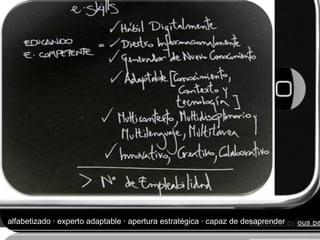 e-skills
✓ Hábil Digitalmente
EDUCANDO
E-COMPETENTE = ✓ Diestro Informacionalmente
✓ Generador de Nuevo Conocimiento
✓ Adaptable [Conocimiento,
Contexto y
tecnología]
✓ Multicontexto, Multidisciplinario y
Multilenguaje, Multitarea
✓ Innovativo, Creativo, Colaborativo
> Nº de Empleabilidad
alfabetizado · experto adaptable · apertura estratégica · capaz de desaprender
ous pa